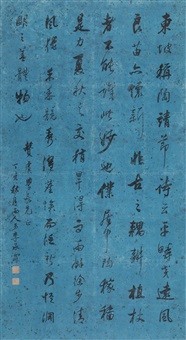 東坡稱陶靖節詩云平疇交遠風
良苗亦懷新非古之耦耕植杖
者不能識此妙也僕居中陶稼穡
是力夏秋之交稍旱得雨雨餘徐步清
風獵禾黍競秀濯塵埃而泛新乃悟淵
明之善體物也